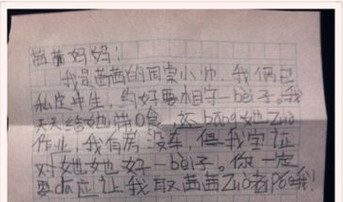 茜茜妈妈:
我是茜茜的同桌小帅,我俩已
私定终生,约好要相守一bèi子。我
天天给她带0食,还bāng她zuò
作业,我有房没车,但我字证
对她她好一bèi子。你一定
要dā应让我取茜茜zuò老Pó哦!